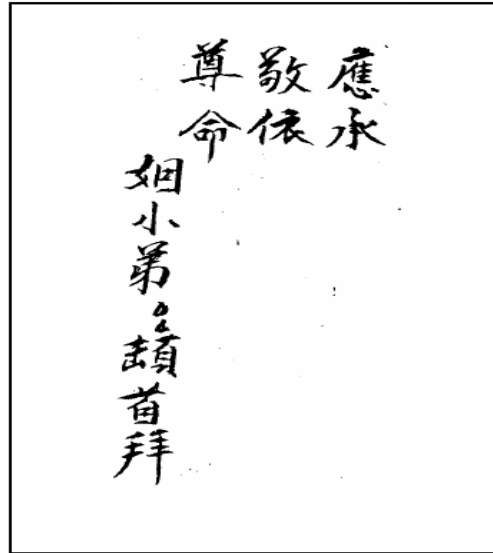 應承
敬依
尊命
姻小弟〇〇頓首拜